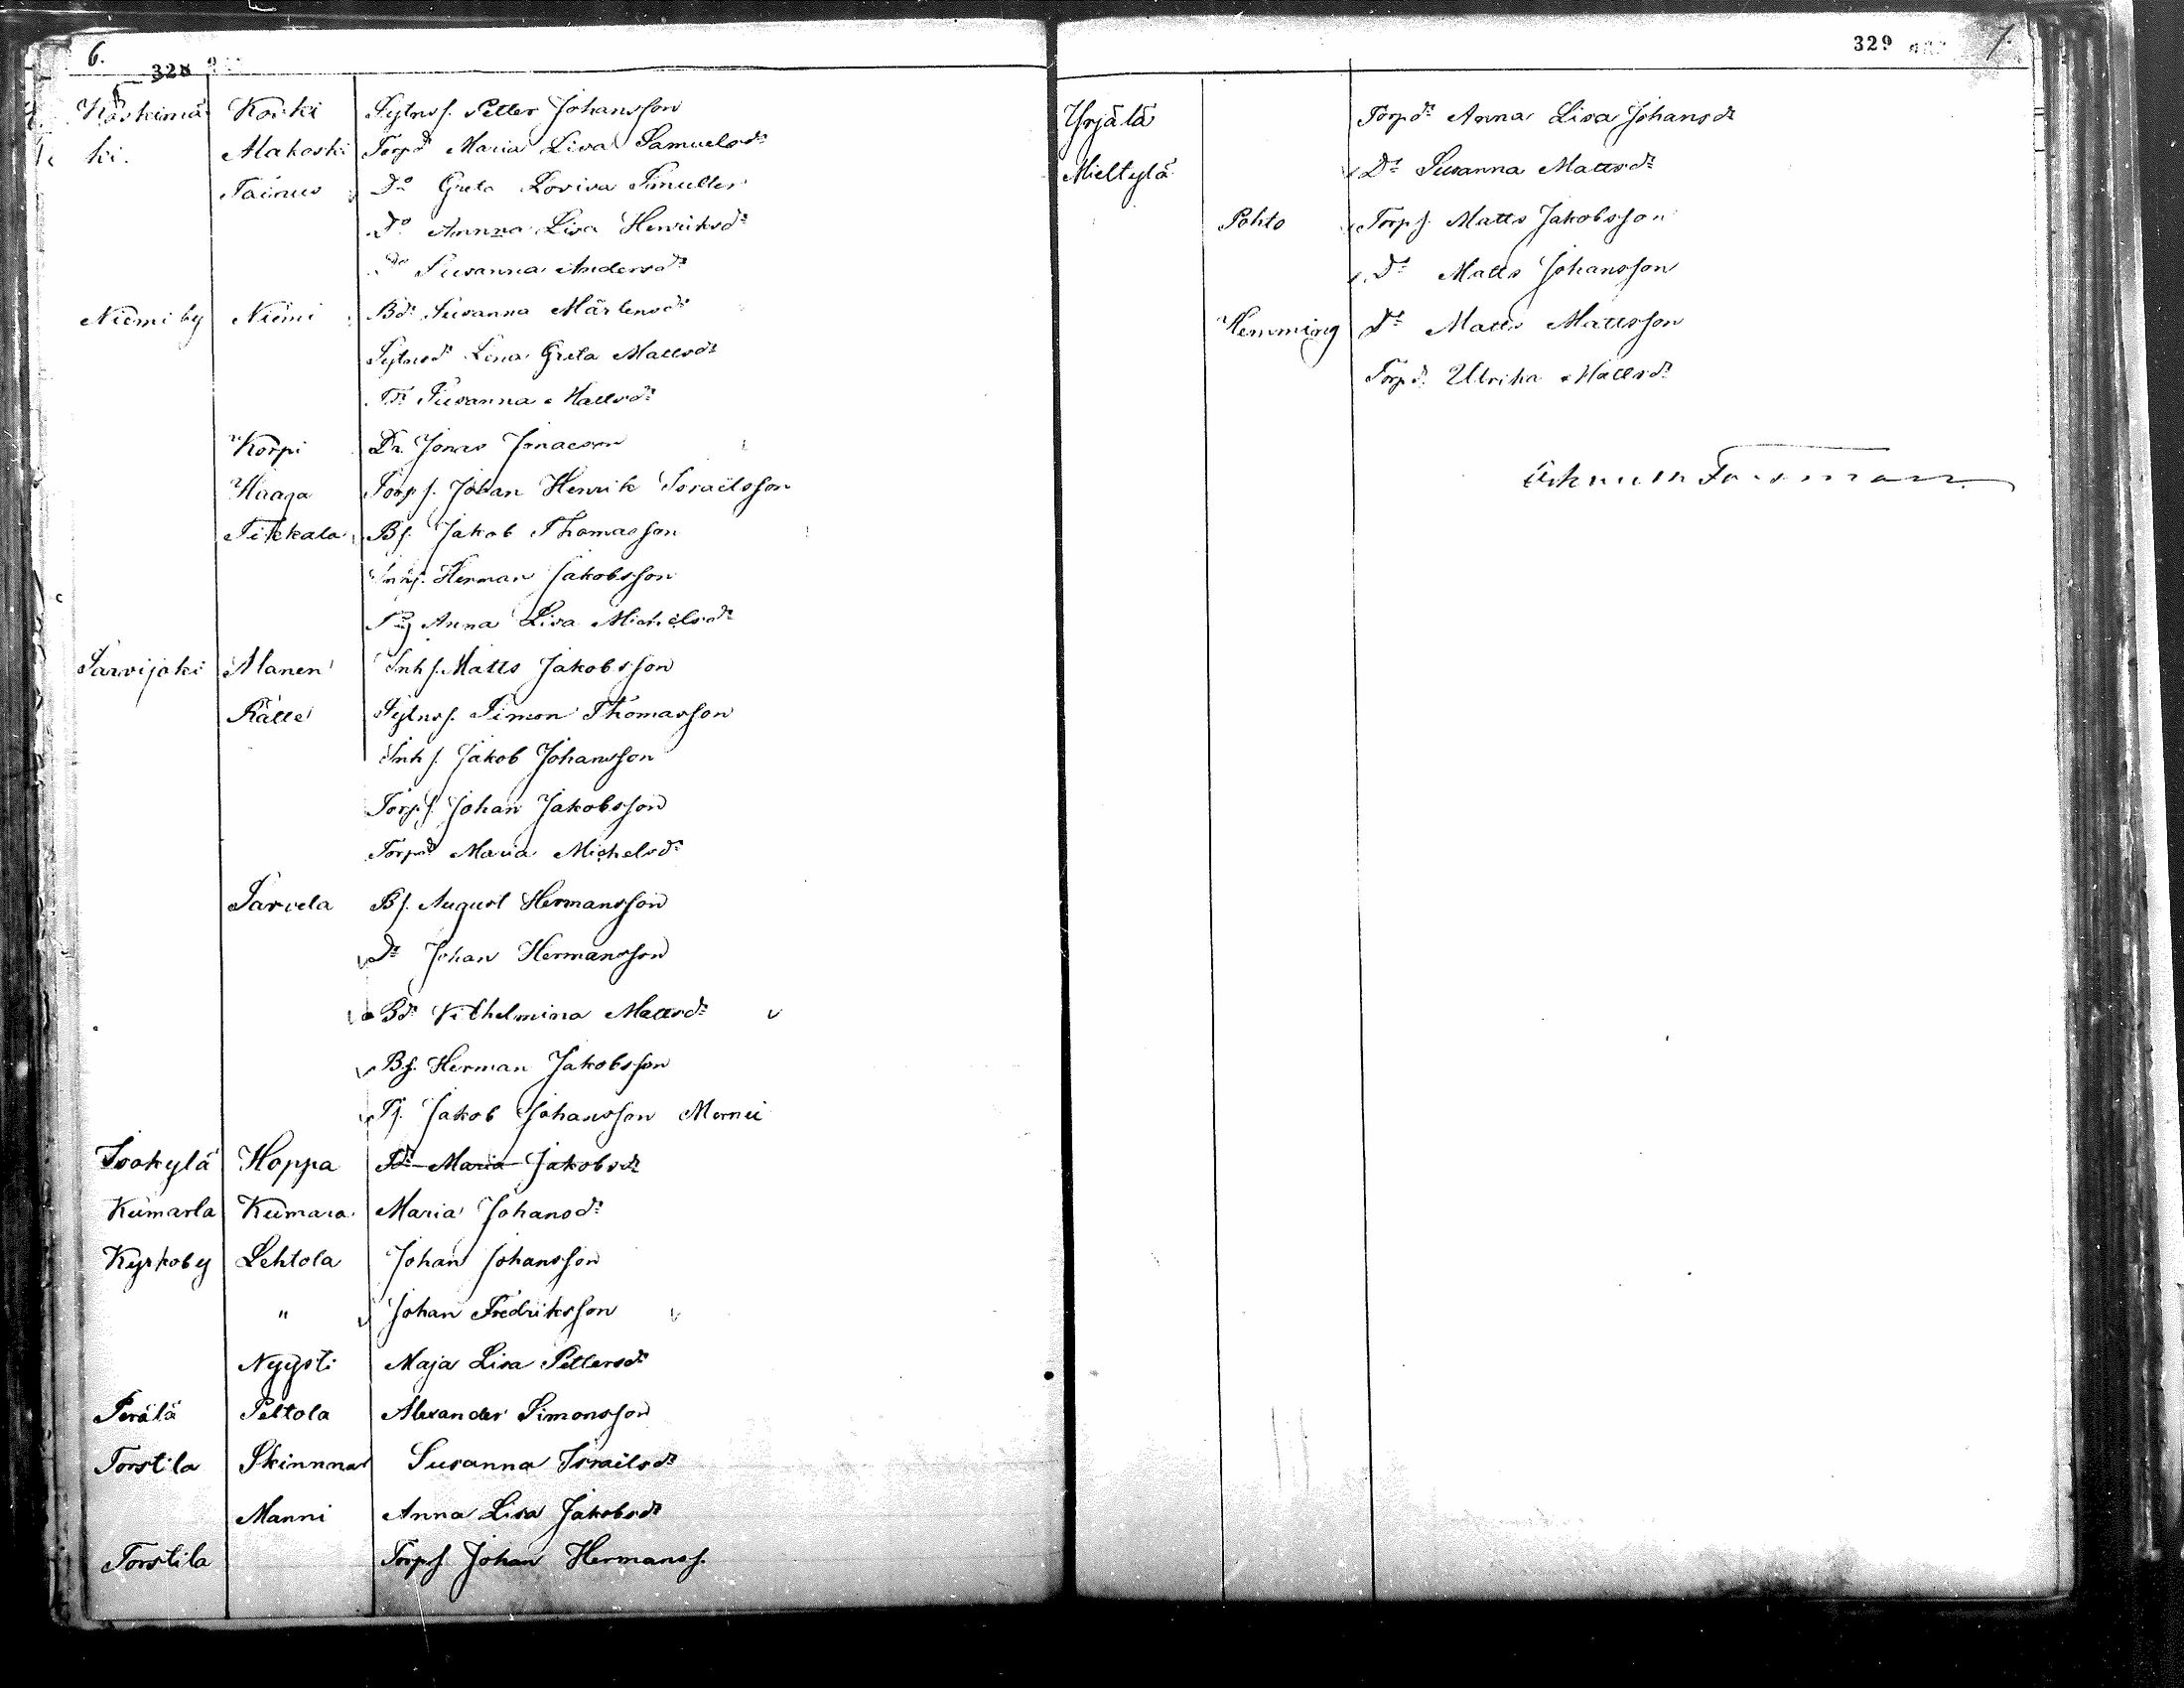 6.
328
Koskimä Koski Sytnsf. Petter Johansson
ki. Alakoski Torpdr Maria Lisa Samuelsdr
Tainus Do Greta Lovisa Smulter
Do Annna Lisa Henriksdr
Do Susanna Andersdr
Niemi by Niemi Bdr Susanna Mårtensdr
Sytnsdr Lena Greta Mattsdr
Tdr Susanna Mattsdr
Korpi Dr. Jonas Jonaeson
Haaga Torpf. Johan Henrik Israelsson
Tikkala Bf. Jakob Thomasson
Inhf. Herman Jakobsson
Anna Lisa Michelsdr
Jarvijoki Alanen Inhf. Matts Jakobsson
Rälle Sytnsf. Simon Thomasson
Inhf. Jakob Johansson
Torpf. Johan Jakobsson
Torpdr Maria Michelsdr
Jarvela Bf. August Hermansson
Do Johan Hermansson
Bdr Vilhelmina Mattsdr
Bf. Herman Jakobsson
Tf. Jakob Johansson
Isokylä Hoppa Tdr Maria Jakobsdr
Kumarla Kumara Maria Johansdr
Kyrkoby Lehtola Johan Johansson
" Johan Fredriksson
Nyysti Maja Lisa Pettersdr
Perälä Peltola Alexander Simonsson
Torstila Skinnnar Susanna Israelsdr
Manni Anna Lisa Jakobsdr
Torstila Torpf. Johan Hermansf.
329
7.
Yrjälä Torpdr Anna Lisa Johansdr
Mieltylä Do Susanna Mattsdr
Pohto Torpf. Matts Jakobsson
Do Matts Johansson
Hemming Do Matts Mattsson
Torpdr Ulrika Mattsdr